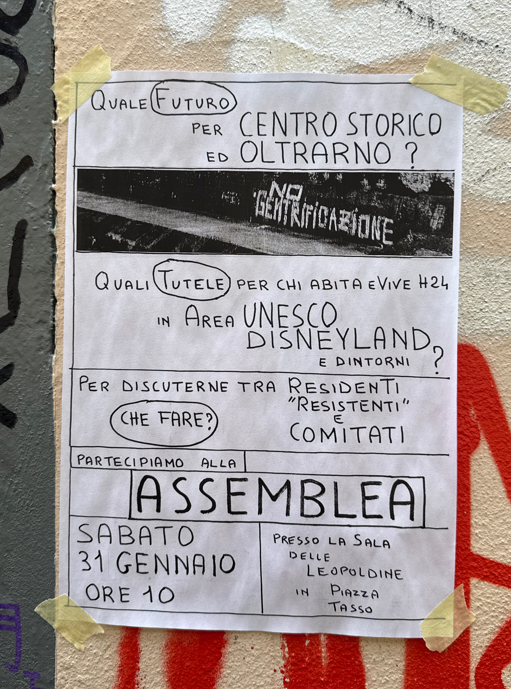 QUALE FUTURO
PER CENTRO STORICO
ED OLTRARNO ?
NO
GENTRIFICAZIONE
QUALI TUTELE PER CHI ABITA E VIVE H24
IN AREA UNESCO
DISNEYLAND
E DINTORNI ?
PER DISCUTERNE TRA RESIDENTI
"RESISTENTI"
E
COMITATI
CHE FARE?
PARTECIPIAMO ALLA
ASSEMBLEA
SABATO
31 GENNAIO
ORE 10
PRESSO LA SALA
DELLE
LEOPOLDINE
IN PIAZZA
TASSO